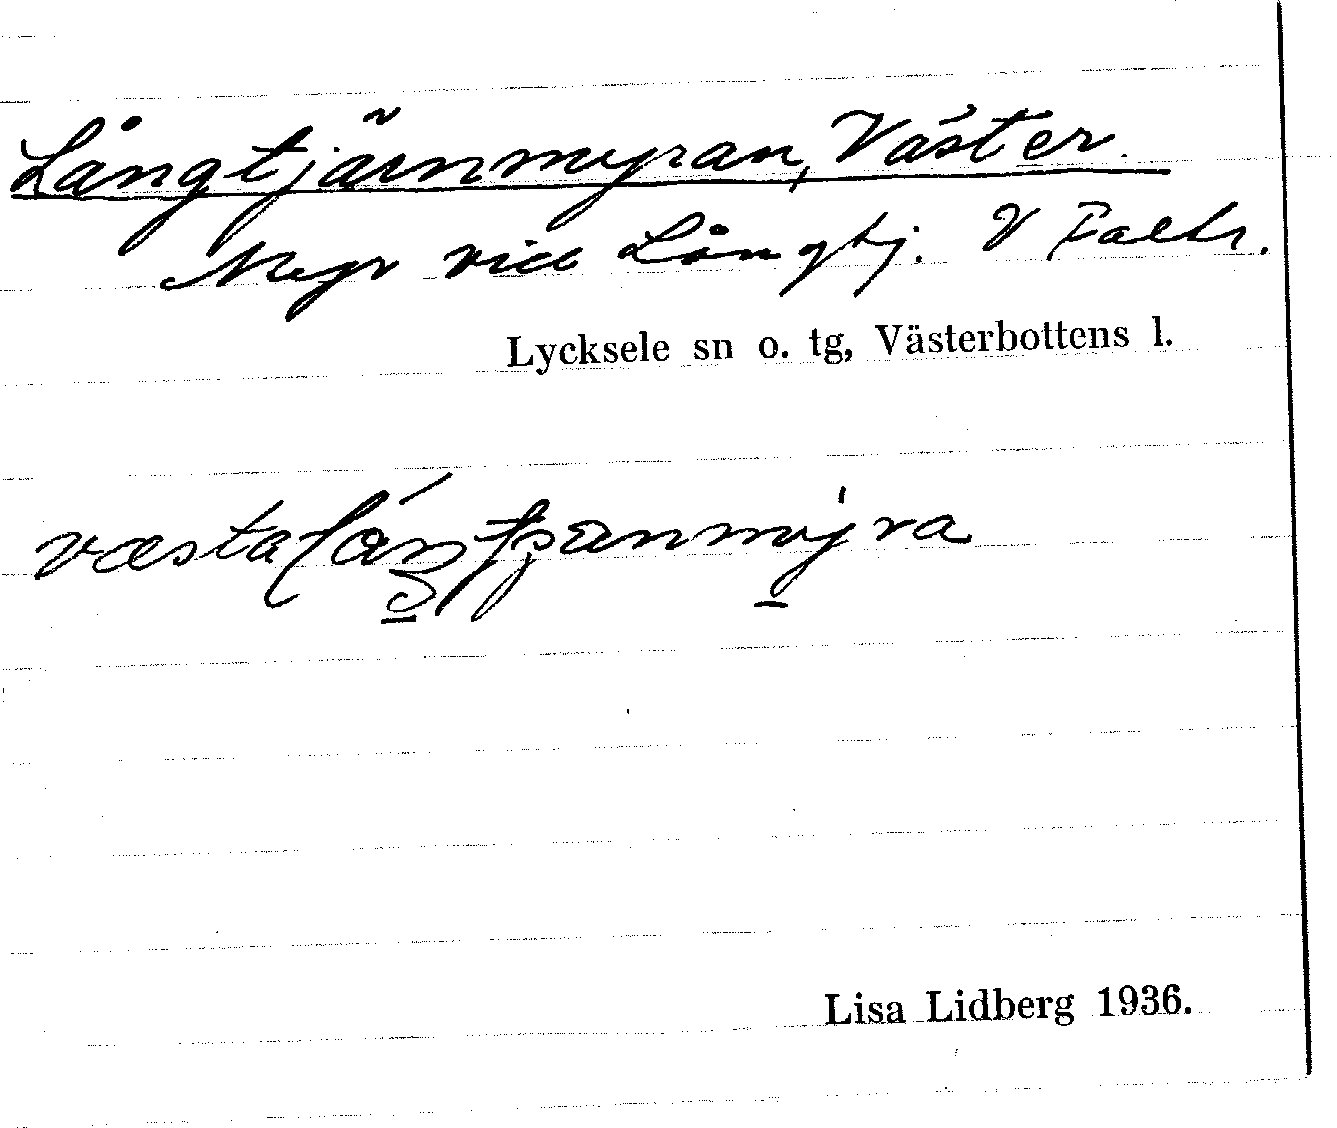 Långtjärnmyran, Väster
Myr vid Långtj. V Faltr.
Lycksele sn o. tg, Västerbottens l.
Lisa Lidberg 1936.